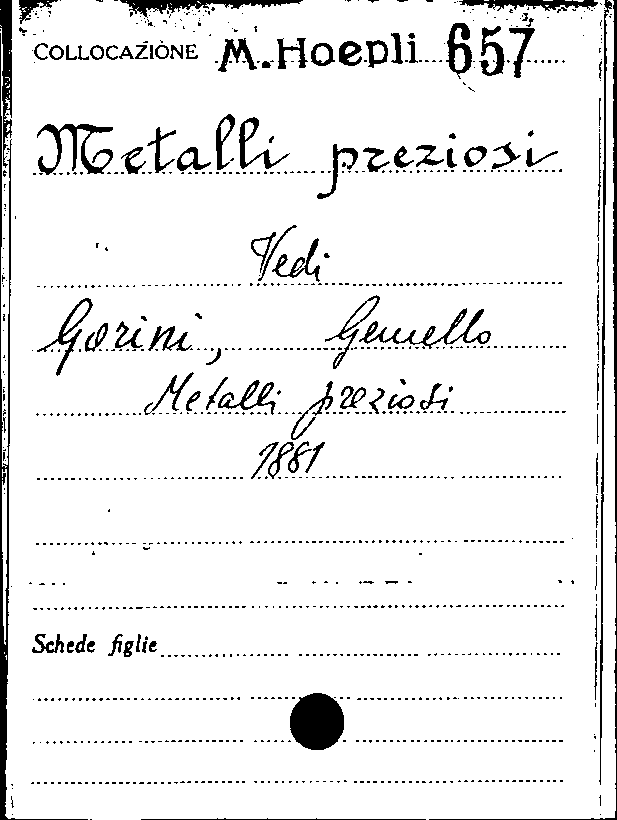 COLLOCAZIONE M. Hoepli 657
Metalli preziosi
Vedi
Gorini, Gemello
Metalli preziosi
1881
Schede figlie